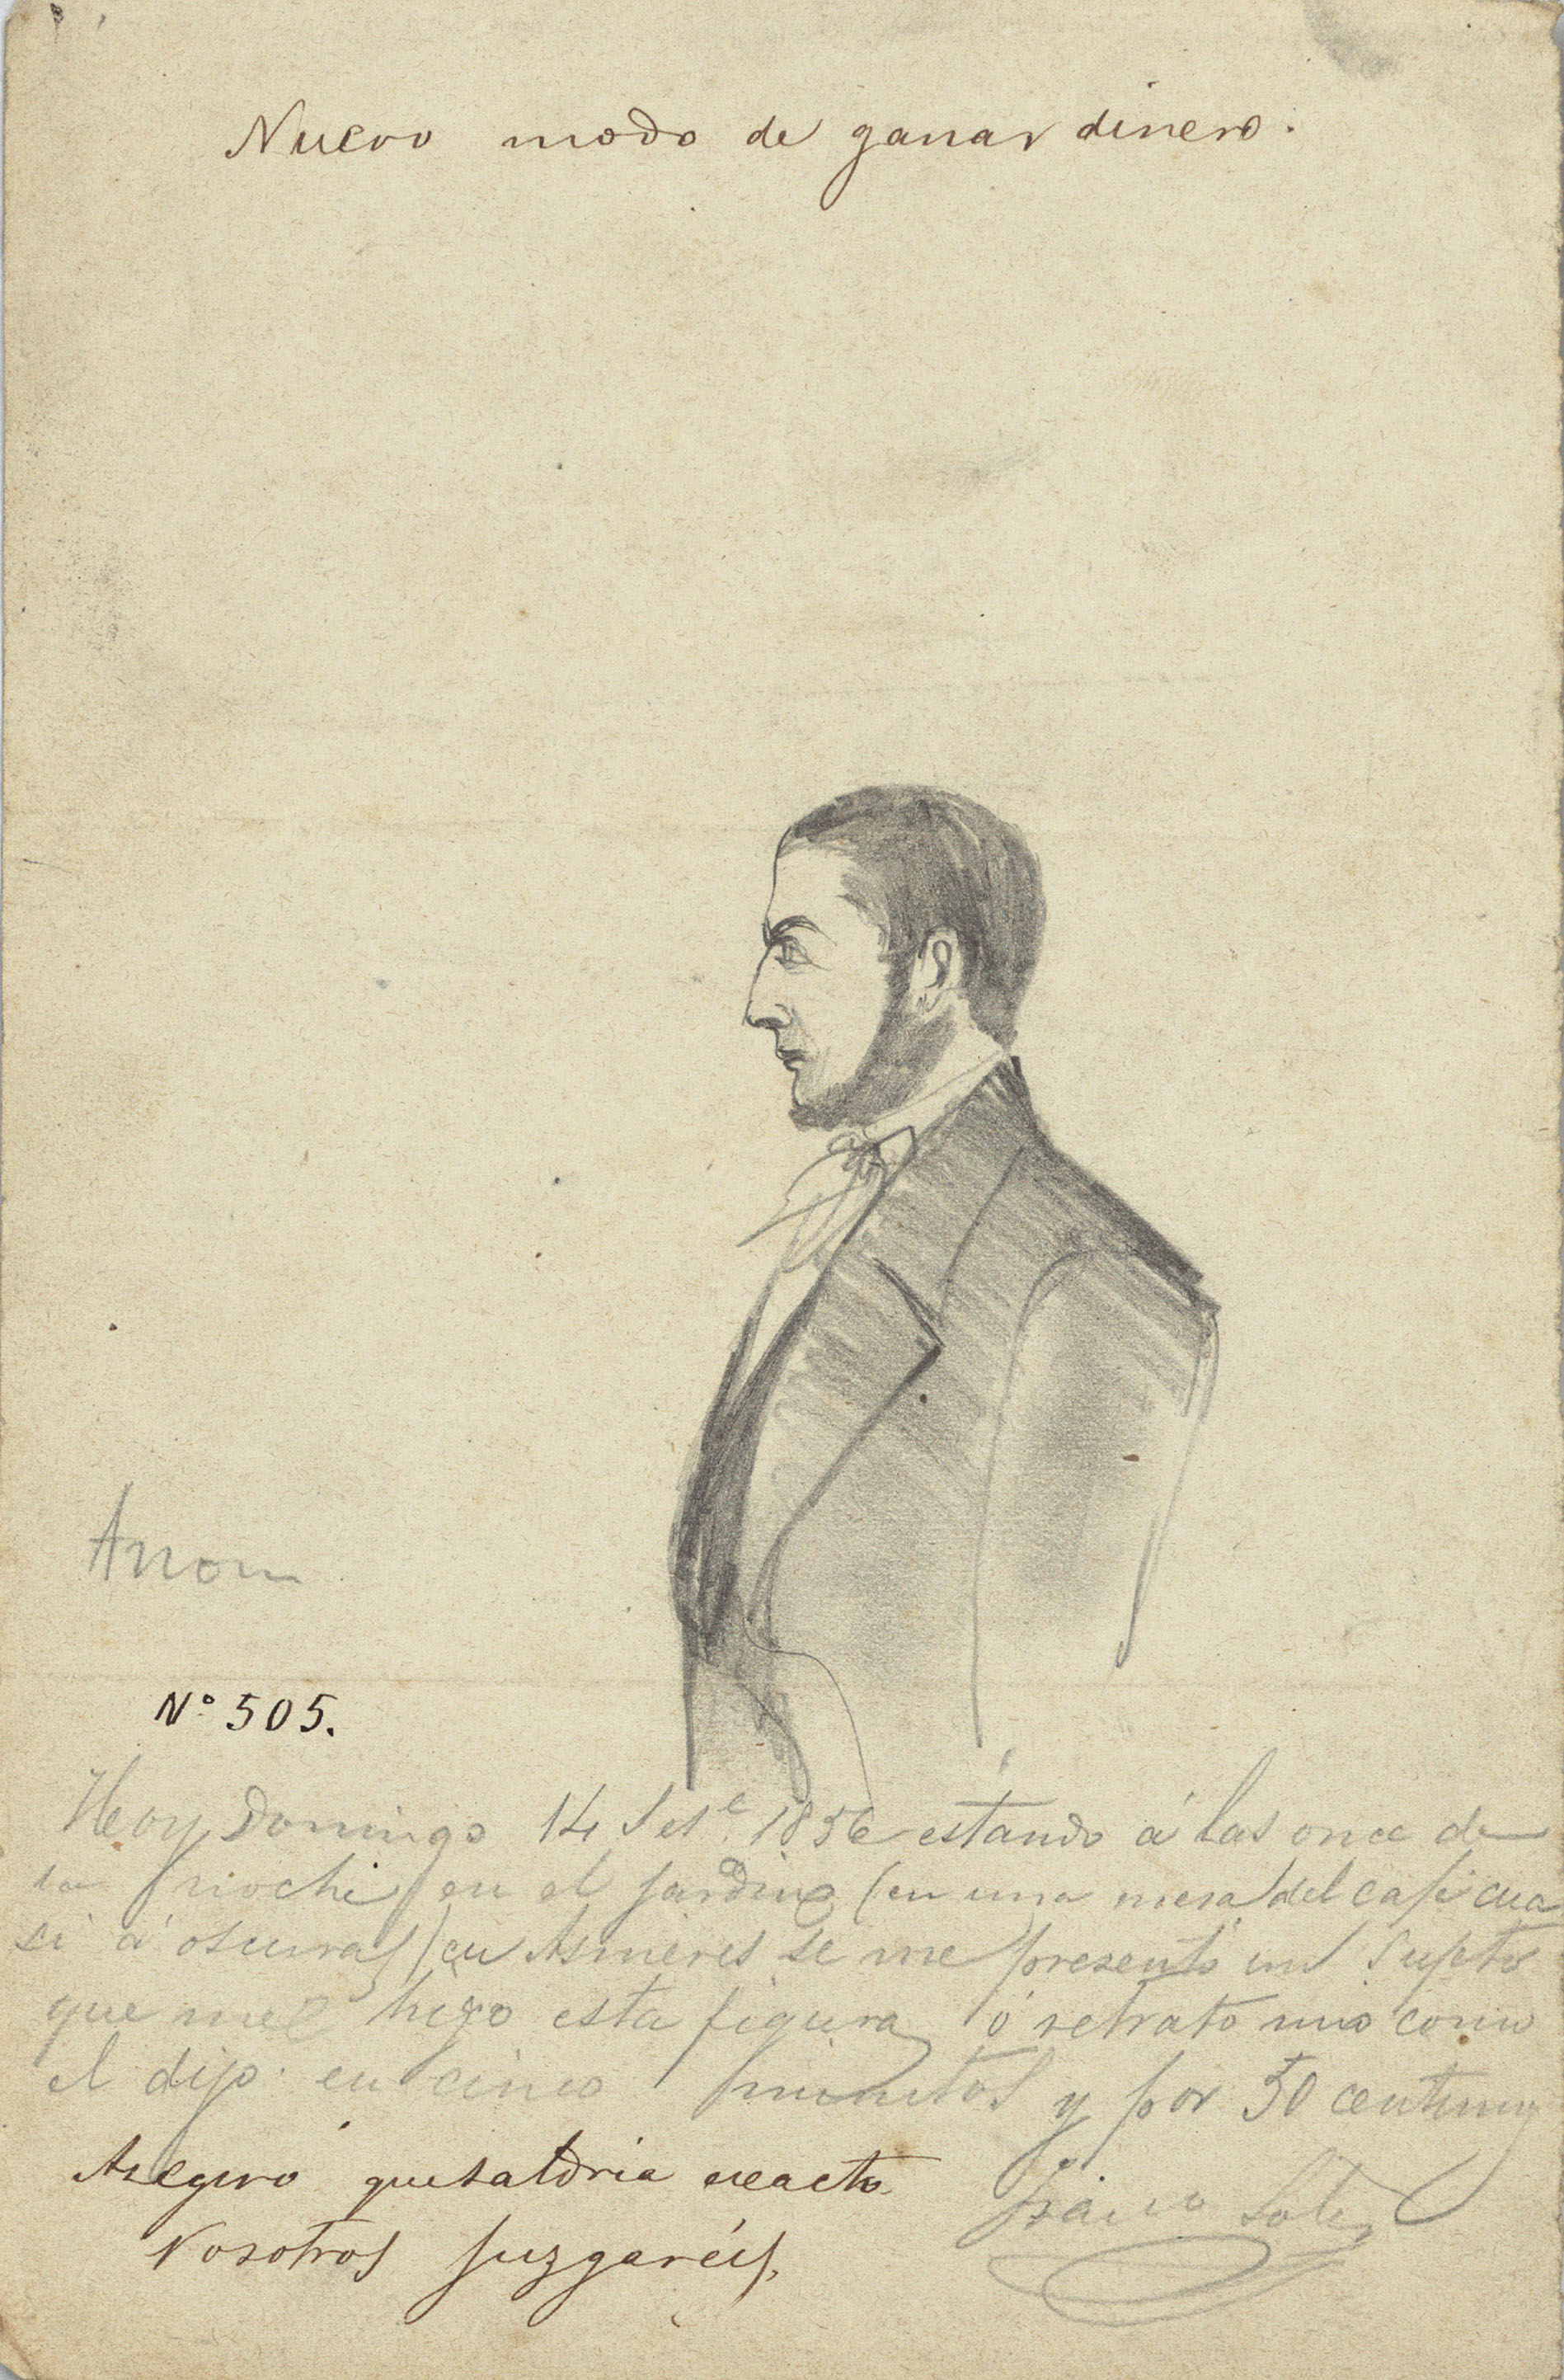 Nuevo modo de ganar dinero.
Anom
Nº 505.
Hoy Domingo 14 Set.e 1856 estando á las once de
la noche en el jardin (en una mesa del café cua
si á oscuras) en Asnieres se me presentó un sujeto
que me hizo esta figura ó retrato mio como
el dijo en cinco minutos y por 50 centimos
Aseguró que saldria exacto.
Vosotros juzgaréis.
Soler